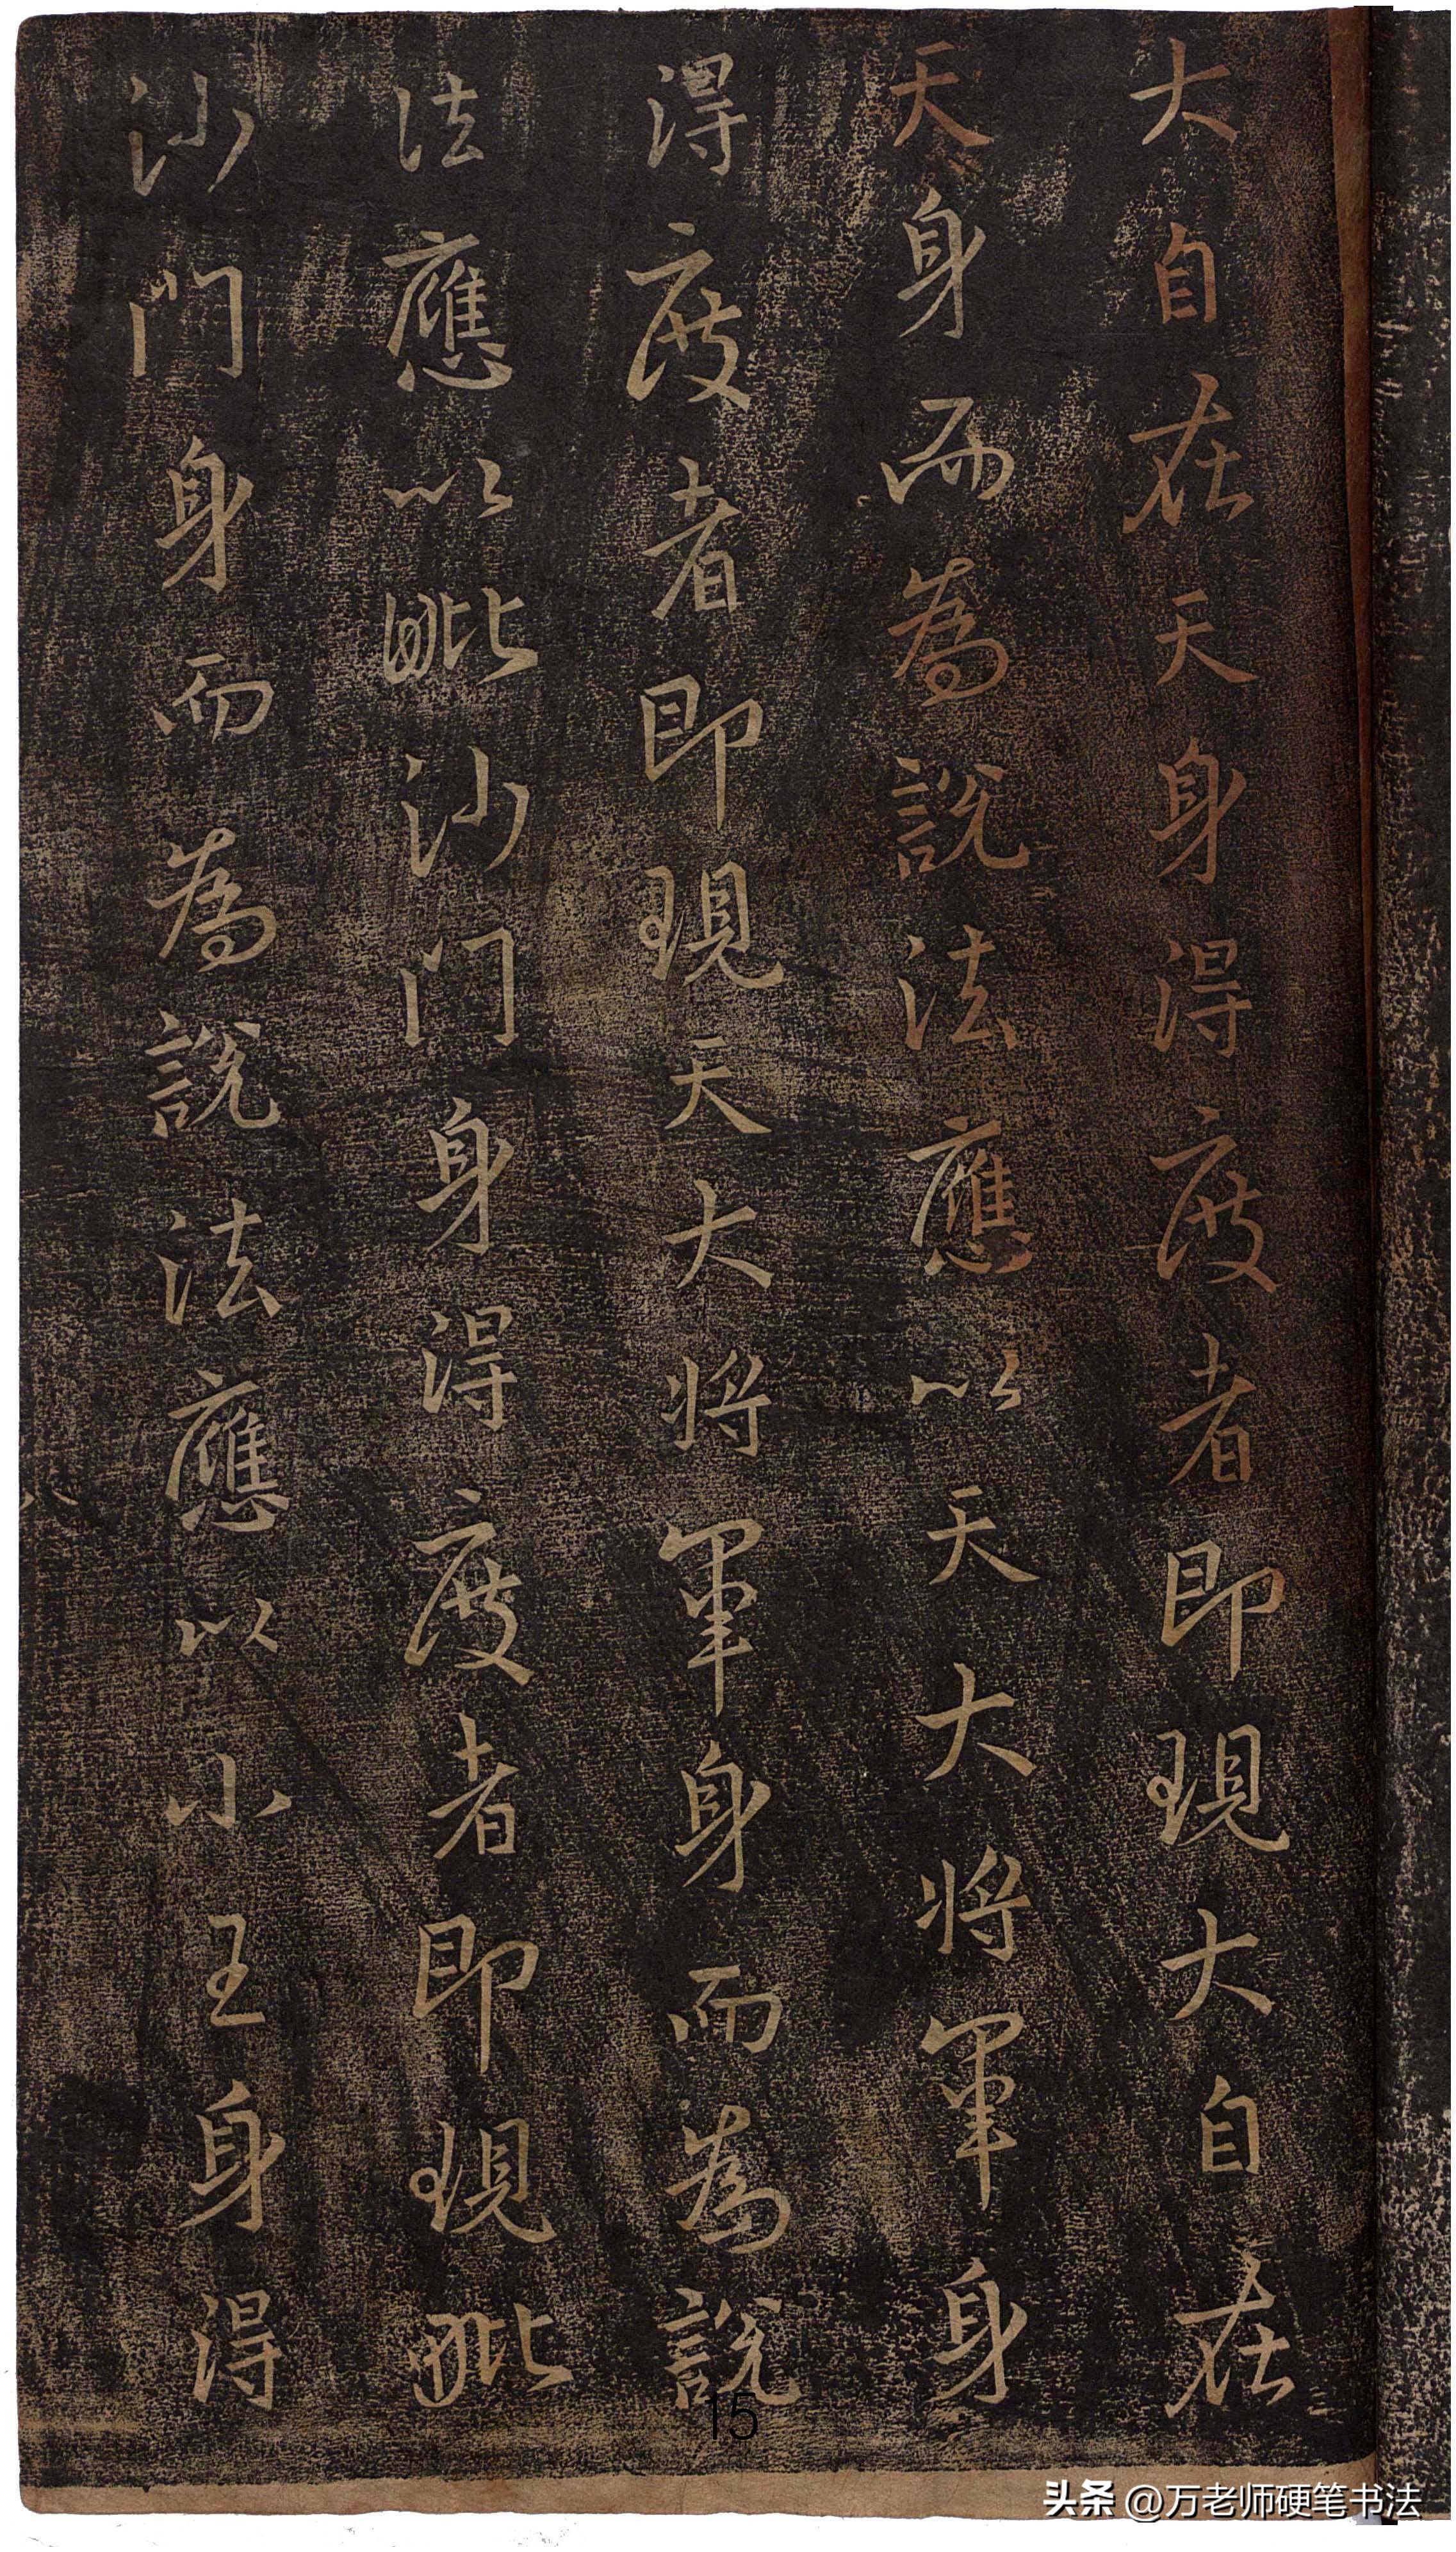 大自在天身得度者即現大自在
天身而為說法應以天大将軍身
得度者即現天大将軍身而為說
法應以毗沙門身得度者即現毗
沙門身而為說法應以小王身得
15
头条 @万老师硬笔书法